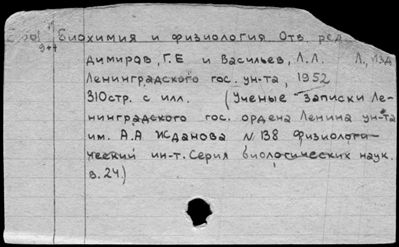 Биохимия и физиология Отв. ред.
димиров, Г.Е и Васильев, Л.Л. Л., Изд
Ленинградского гос. ун-та, 1952
310стр. с илл. (Ученые записки Ле-
нинградского гос. ордена Ленина ун-та
им. А.А Жданова N 138 Физиологи-
ческий ин-т. Серия биологических наук.
в. 24)